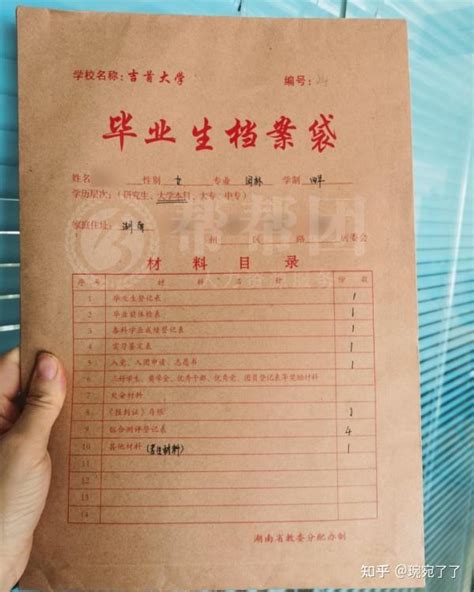 学校名称:吉首大学 编号:
毕业生档案袋
姓名 性别 女 专业 园林 学制 四年
学历层次:(研究生、大学本科、大专、中专)
家庭住址:湖南 州 区 路 居委会
帮帮团
材料目录
序号 材料名称 份数
1 毕业生登记表 1
2 毕业前体检表 1
3 各科学业成绩登记表 1
4 实习鉴定表 1
5 入党、入团申请、志愿书 1
6 三好学生、奖学金、优秀干部、优秀党、团员登记表等奖励材料
7 处分材料
8 《报到证》存根 1
9 综合测评登记表 4
10 其他材料 1
11
12
13
14
湖南省教委分配办制
知乎 @琬宛了了